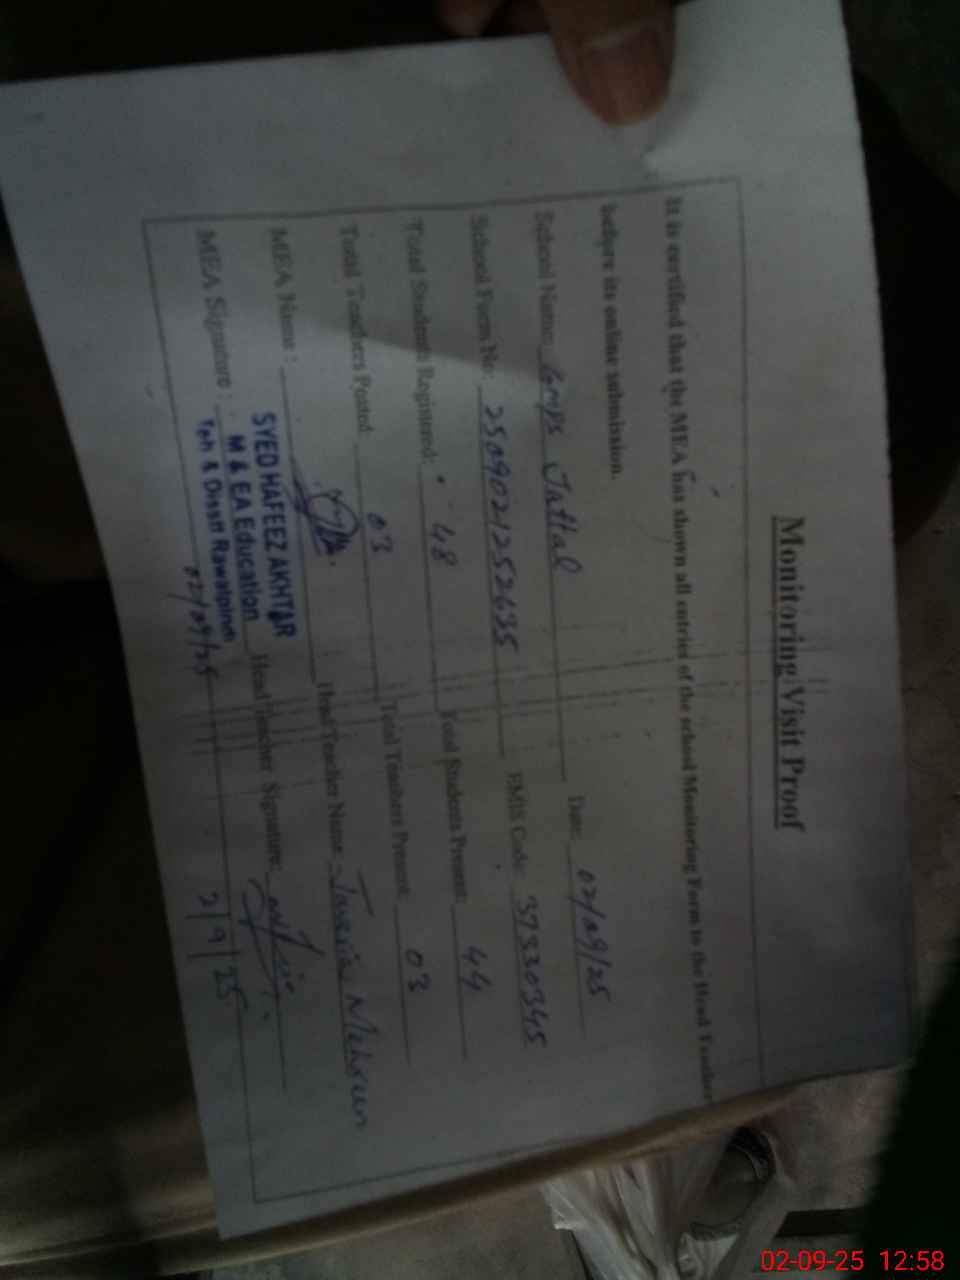 Monitoring Visit Proof
It is certified that the MEA has shown all entries of the school Monitoring Form to the Head Teacher
before its online submission.
School Name: GMPS Jattal Date: 02/09/25
School Form No: 2509021252635 EMIS Code: 37330345
Total Students Registered: 48 Total Students Present: 44
Total Teachers Posted 03 Total Teachers Present: 03
MEA Name: Head Teacher Name: Javeria Mehreen
SYED HAFEEZ AKHTAR
M & EA Education
Teh & Disstt Rawalpindi
MEA Signature: 02/09/25 Head Teacher Signature:
2/9/25
02-09-25 12:58